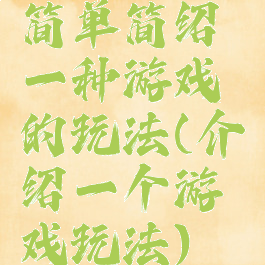 简单简绍
一种游戏
的玩法(介
绍一个游
戏玩法)